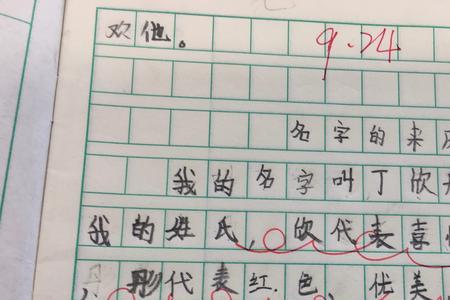 欢他。
9.24
名字的来
我的名字叫丁欣
我的姓氏,欣代表喜
彤代表红色、优美